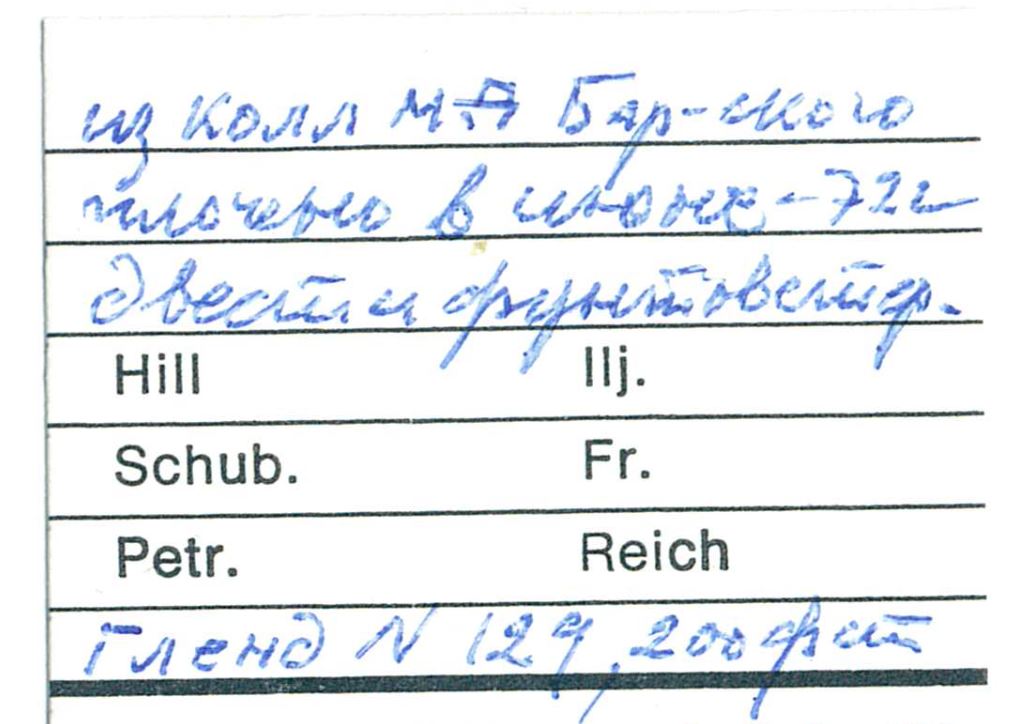 из колл М.А Бар-ского
плочено в июне-72г
двести фунтовстер.
Hill Ilj.
Schub. Fr.
Petr. Reich
Гленд N 129, 200 фст